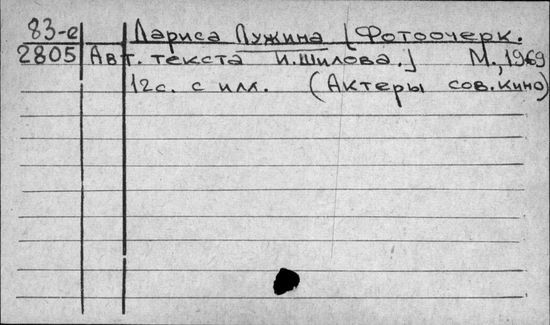 83-е Лариса Лужина [Фотоочерк.
2805 Авт. текста И.Шилова.] М., 1969
12с. с илл. (Актеры сов.кино)